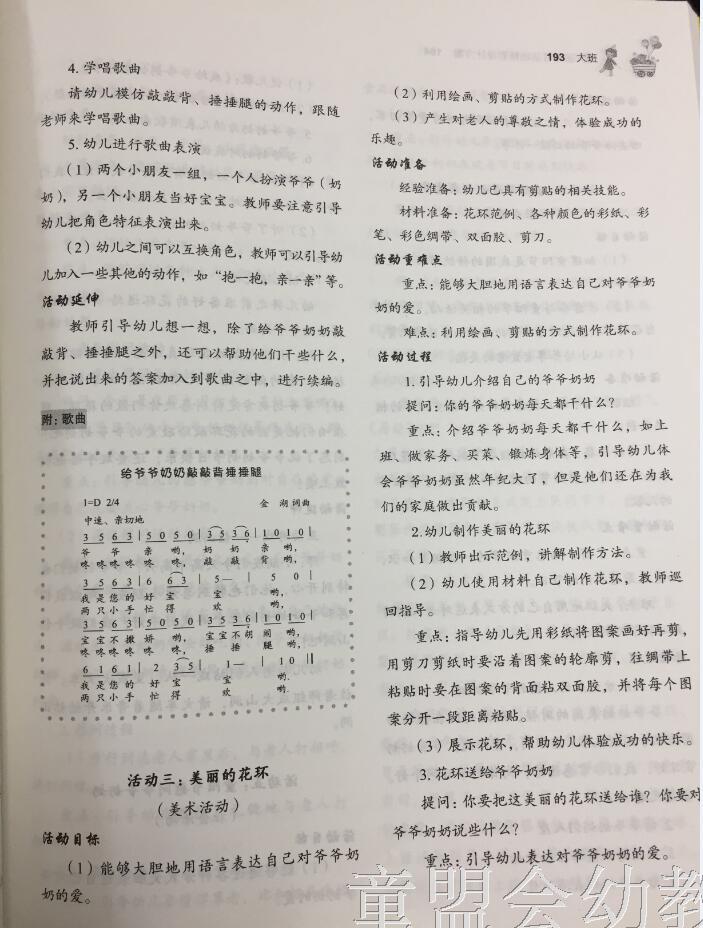 193 大班
4. 学唱歌曲
请幼儿模仿敲敲背、捶捶腿的动作，跟随
老师来学唱歌曲。
5. 幼儿进行歌曲表演
（1）两个小朋友一组，一个人扮演爷爷（奶
奶），另一个小朋友当好宝宝。教师要注意引导
幼儿把角色特征表演出来。
（2）幼儿之间可以互换角色，教师可以引导幼
儿加入一些其他的动作，如“抱一抱，亲一亲”等。
活动延伸
教师引导幼儿想一想，除了给爷爷奶奶敲
敲背、捶捶腿之外，还可以帮助他们干些什么，
并把说出来的答案加入到歌曲之中，进行续编。
附：歌曲
给爷爷奶奶敲敲背捶捶腿
1=D 2/4 金 湖 词曲
中速、亲切地
3 5 6 3 | 5 0 5 0 | 3 5 3 6 | 1 0 1 0 |
爷 爷 亲 哟， 奶 奶 亲 哟，
咚 咚 咚 咚 咚 咚， 敲 敲 背 哟，
3 5 6 3 | 6 6 3 | 5 — | 5 0 |
我 是 您 的 好 宝 宝 哟，
两 只 小 手 忙 得 欢 哟，
3 5 6 3 | 5 0 5 0 | 3 5 3 6 | 1 0 1 0 |
宝 宝 不 撒 娇 哟， 宝 宝 不 胡 闹 哟，
咚 咚 咚 咚 咚 咚， 捶 捶 腿 哟，
6 1 6 1 | 2 3 5 | 1 — | 1 0 ‖
我 是 您 的 好 宝 宝 哟.
两 只 小 手 忙 得 欢 哟.
活动三：美丽的花环
（美术活动）
活动目标
（1）能够大胆地用语言表达自己对爷爷奶
奶的爱。
（2）利用绘画、剪贴的方式制作花环。
（3）产生对老人的尊敬之情，体验成功的
乐趣。
活动准备
经验准备：幼儿已具有剪贴的相关技能。
材料准备：花环范例、各种颜色的彩纸、彩
笔、彩色绸带、双面胶、剪刀。
活动重难点
重点：能够大胆地用语言表达自己对爷爷奶
奶的爱。
难点：利用绘画、剪贴的方式制作花环。
活动过程
1. 引导幼儿介绍自己的爷爷奶奶
提问：你的爷爷奶奶每天都干什么？
重点：介绍爷爷奶奶每天都干什么，如上
班、做家务、买菜、锻炼身体等，引导幼儿体
会爷爷奶奶虽然年纪大了，但是他们还在为我
们的家庭做出贡献。
2. 幼儿制作美丽的花环
（1）教师出示范例，讲解制作方法。
（2）幼儿使用材料自己制作花环，教师巡
回指导。
重点：指导幼儿先用彩纸将图案画好再剪，
用剪刀剪纸时要沿着图案的轮廓剪，往绸带上
粘贴时要在图案的背面粘双面胶，并将每个图
案分开一段距离粘贴。
（3）展示花环，帮助幼儿体验成功的快乐。
3. 花环送给爷爷奶奶
提问：你要把这美丽的花环送给谁？你要对
爷爷奶奶说些什么？
重点：引导幼儿表达对爷爷奶奶的爱。
童盟会幼教